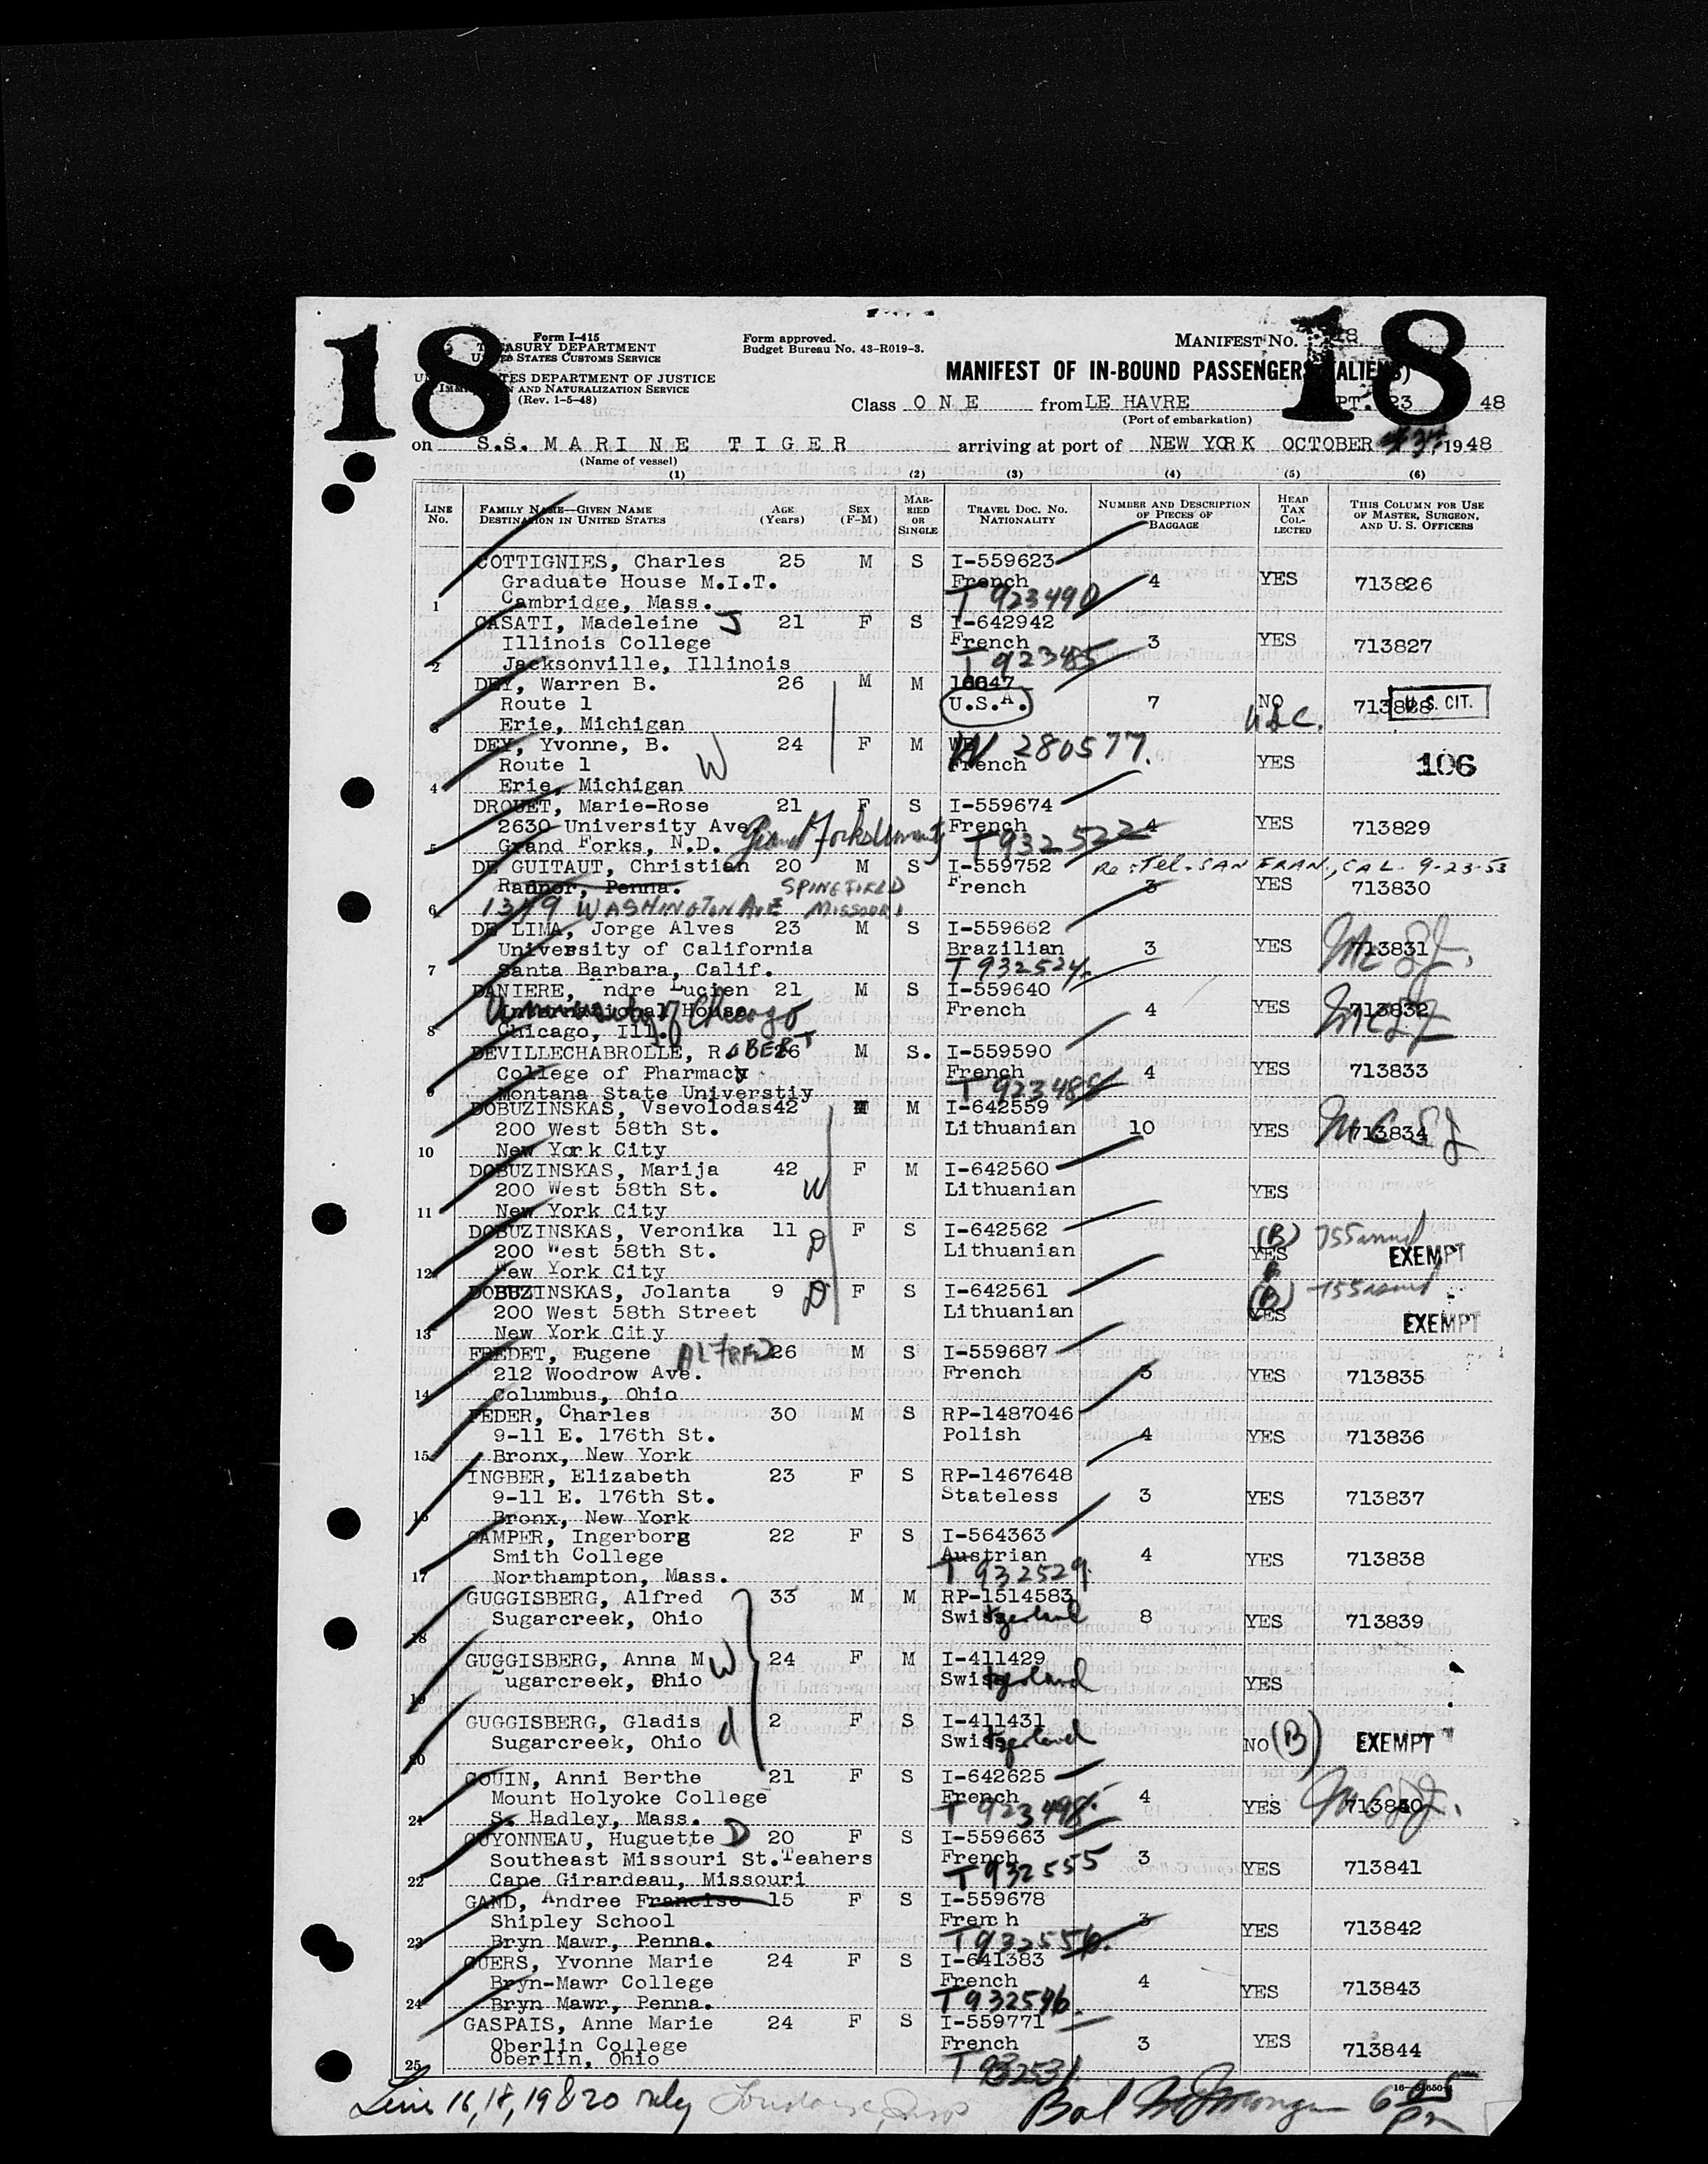 18
18
Form I-415
TREASURY DEPARTMENT
UNITED STATES CUSTOMS SERVICE
UNITED STATES DEPARTMENT OF JUSTICE
IMMIGRATION AND NATURALIZATION SERVICE
(Rev. 1-5-48)
Form approved.
Budget Bureau No. 43-R019-3.
MANIFEST NO. 18
MANIFEST OF IN-BOUND PASSENGERS (ALIENS)
Class O N E from LE HAVRE SEPT. 23 48
(Port of embarkation)
on S.S. M A R I N E T I G E R arriving at port of NEW YORK OCTOBER 19 48
(Name of vessel)
(1) (2) (3) (4) (5) (6)
LINE No. FAMILY NAME—GIVEN NAME DESTINATION IN UNITED STATES AGE (Years) SEX (F-M) MARRIED OR SINGLE TRAVEL DOC. NO. NATIONALITY NUMBER AND DESCRIPTION OF PIECES OF BAGGAGE HEAD TAX COLLECTED THIS COLUMN FOR USE OF MASTER, SURGEON, AND U. S. OFFICERS
COTTIGNIES, Charles 25 M S I-559623
Graduate House M.I.T. French 4 YES 713826
1 Cambridge, Mass. T 923490
CASATI, Madeleine J 21 F S I-642942
Illinois College French 3 YES 713827
2 Jacksonville, Illinois T 923485
DEY, Warren B. 26 M M 16647
Route 1 U.S.A. 7 NO 713828 U. S. CIT.
3 Erie, Michigan USC.
DEY, Yvonne, B. 24 F M W 280577.
Route 1 W French YES 106
4 Erie, Michigan
DROUET, Marie-Rose 21 F S I-559674
2630 University Ave French 4 YES 713829
5 Grand Forks, N.D. Grand Forks University T932522
DE GUITAUT, Christian 20 M S I-559752 Re: Tel. SAN FRAN., CAL. 9-23-53
Radnor, Penna. SPINGFIELD French 3 YES 713830
6 1379 WASHINGTON AVE MISSOURI
DE LIMA, Jorge Alves 23 M S I-559662
University of California Brazilian 3 YES 713831
7 Santa Barbara, Calif. T 932524.
DANIERE, Andre Lucien 21 M S I-559640
International House French 4 YES 713832
University of Chicago
8 Chicago, Ill.
DEVILLECHABROLLE, ROBERT 26 M S. I-559590
College of Pharmacy French 4 YES 713833
9 Montana State Universtiy T 923488
DOBUZINSKAS, Vsevolodas 42 M M I-642559
200 West 58th St. Lithuanian 10 YES 713834
10 New York City
DOBUZINSKAS, Marija 42 F M I-642560
200 West 58th St. W Lithuanian YES
11 New York City
DOBUZINSKAS, Veronika 11 F S I-642562 (B) 755 issued
200 West 58th St. D Lithuanian YES EXEMPT
12 New York City
DOBUZINSKAS, Jolanta 9 D F S I-642561 (B) 755 issued
200 West 58th Street Lithuanian YES EXEMPT
13 New York City
FREDET, Eugene ALFRED 26 M S I-559687
212 Woodrow Ave. French 3 YES 713835
14 Columbus, Ohio
FEDER, Charles 30 M S RP-1487046
9-11 E. 176th St. Polish 4 YES 713836
15 Bronx, New York
INGBER, Elizabeth 23 F S RP-1467648
9-11 E. 176th St. Stateless 3 YES 713837
16 Bronx, New York
GAMPER, Ingerborg 22 F S I-564363
Smith College Austrian 4 YES 713838
17 Northampton, Mass. T 932529.
GUGGISBERG, Alfred 33 M M RP-1514583
Sugarcreek, Ohio Switzerland 8 YES 713839
18
GUGGISBERG, Anna M W 24 F M I-411429
Sugarcreek, Ohio Switzerland YES
19
GUGGISBERG, Gladis d 2 F S I-411431
Sugarcreek, Ohio Switzerland NO (B) EXEMPT
20
GOUIN, Anni Berthe 21 F S I-642625
Mount Holyoke College French 4 YES 713840
21 S. Hadley, Mass. T 923498.
GUYONNEAU, Huguette D 20 F S I-559663
Southeast Missouri St.Teahers French 3 YES 713841
22 Cape Girardeau, Missouri T 932555
GAND, Andree Francise 15 F S I-559678
Shipley School French 3 YES 713842
23 Bryn Mawr, Penna. T932556.
GUERS, Yvonne Marie 24 F S I-641383
Bryn-Mawr College French 4 YES 713843
24 Bryn Mawr, Penna. T932546.
GASPAIS, Anne Marie 24 F S I-559771
Oberlin College French 3 YES 713844
25 Oberlin, Ohio T 932531
Lines 16, 18, 19 & 20 only
Bal 6 05 pm